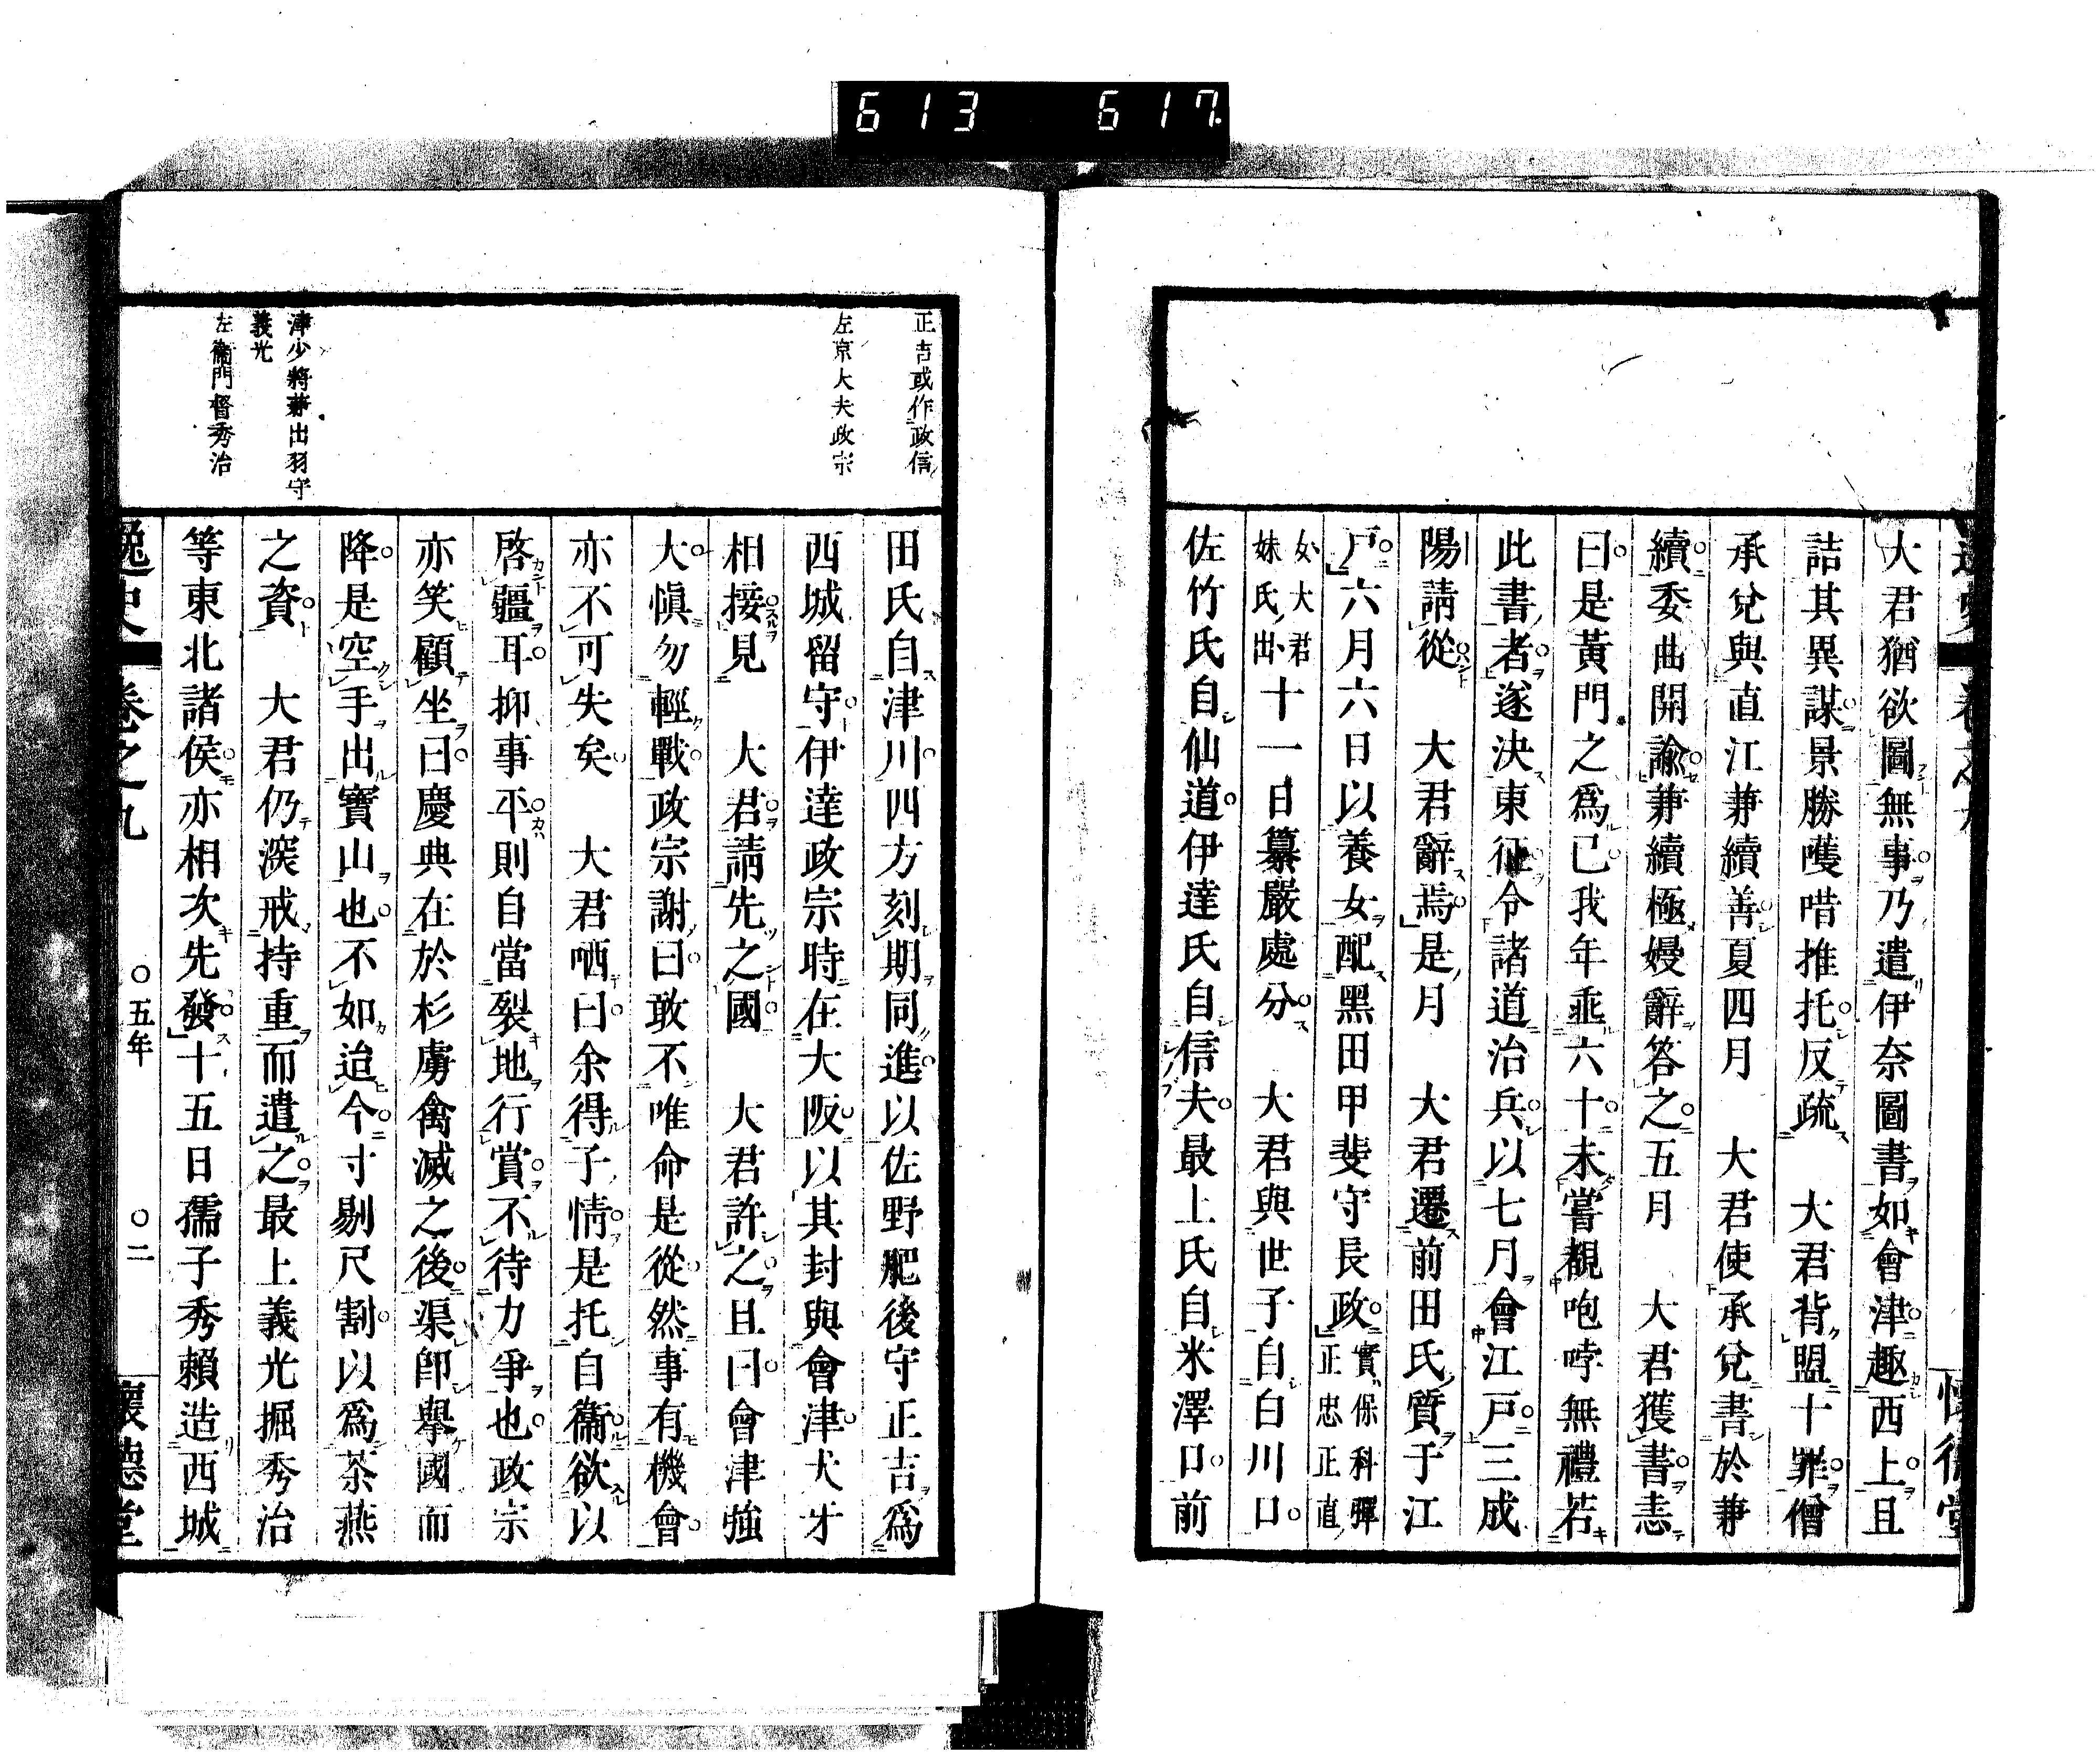 613 617
大君猶欲圖無事乃遣伊奈圖書如會津趣西上且
詰其異謀景勝嚄唶推托反疏　大君背盟十罪僧
承兌與直江兼續善夏四月　大君使承兌書於兼
續委曲開諭兼續極嫚辭答之五月　大君獲書恚
曰是黃門之爲已我年垂六十未嘗覩咆哮無禮若
此書者遂決東征令諸道治兵以七月會江戸三成
陽請從　大君辭焉是月　大君遷前田氏質于江
戸六月六日以養女配黑田甲斐守長政實保科彈
正忠正直
女大君
妹氏出十一日纂嚴處分　大君與世子自白川口
佐竹氏自仙道伊達氏自信夫最上氏自米澤口前
正吉或作政信
左京大夫政宗
津少將兼出羽守
義光
左衞門督秀治
田氏自津川四方刻期同進以佐野肥後守正吉爲
西城留守伊達政宗時在大阪以其封與會津犬牙
相接見　大君請先之國　大君許之且曰會津強
大愼勿輕戰政宗謝曰敢不唯命是從然事有機會
亦不可失矣　大君哂曰余得子情是托自衞欲以
啓疆耳抑事平則自當裂地行賞不待力爭也政宗
亦笑顧坐曰慶典在於杉虜禽滅之後渠卽擧國而
降是空手出寶山也不如迨今寸剔尺割以爲茶燕
之資　大君仍深戒持重而遣之最上義光掘秀治
等東北諸侯亦相次先發十五日孺子秀賴造西城
逸史　卷之九　〇五年　〇二　懷德堂